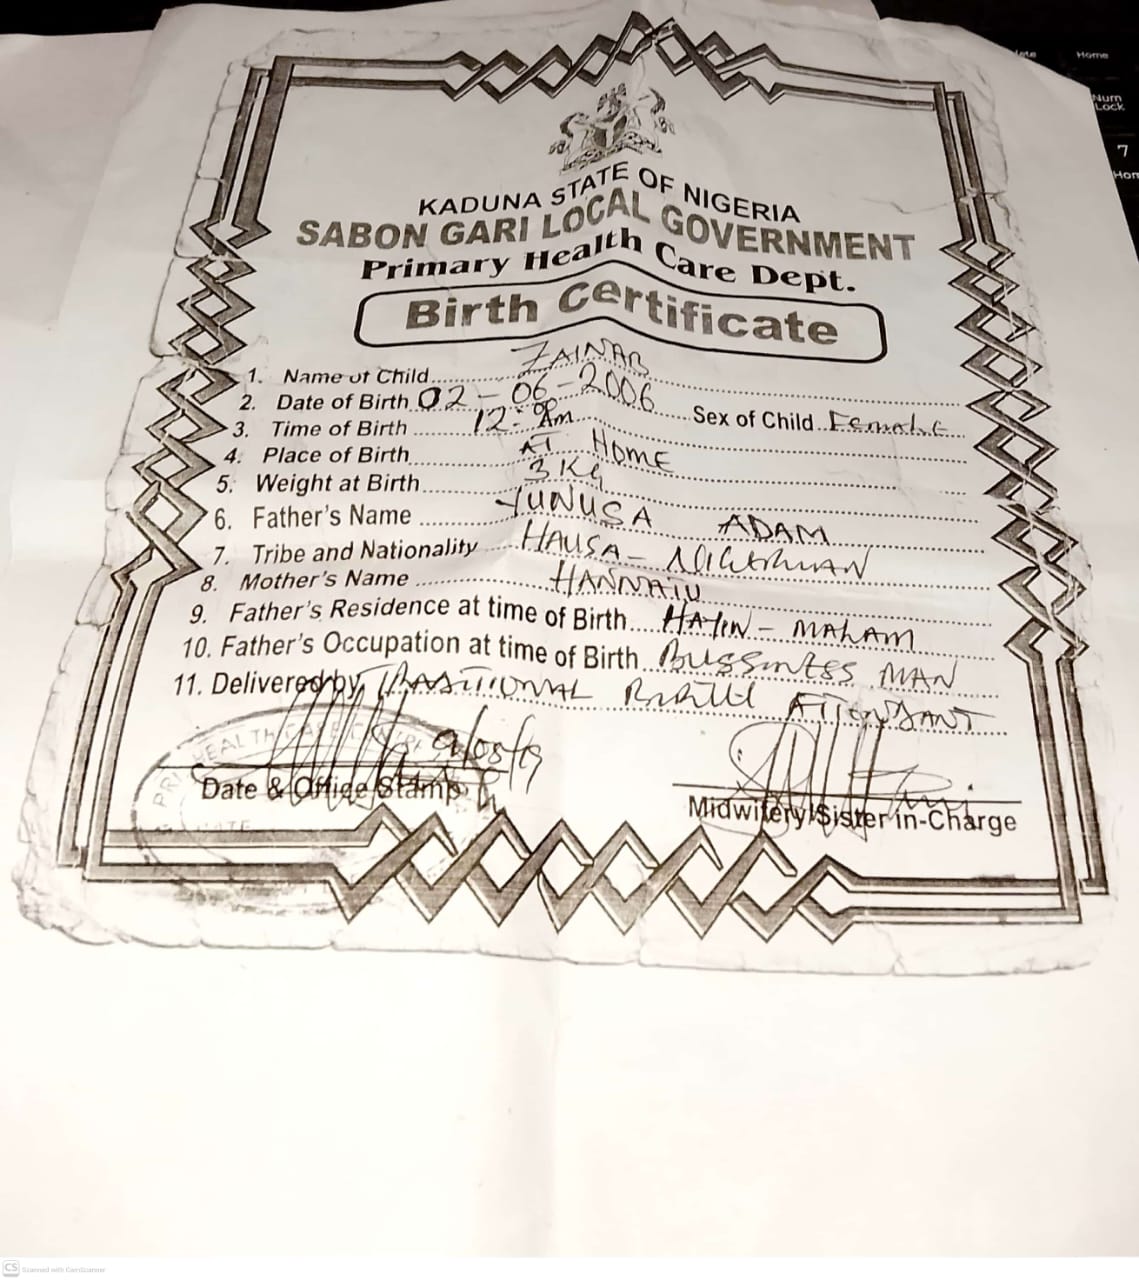 KADUNA STATE OF NIGERIA
SABON GARI LOCAL GOVERNMENT
Primary Health Care Dept.
Birth Certificate
1. Name of Child ZAINAB
2. Date of Birth 02-06-2006 Sex of Child Female
3. Time of Birth 12:00 Am
4. Place of Birth AT HOME
5. Weight at Birth 3 Kg
6. Father's Name YUNUSA ADAM
7. Tribe and Nationality HAUSA - NIGERIAN
8. Mother's Name HANNATU
9. Father's Residence at time of Birth HAYIN - MALAM
10. Father's Occupation at time of Birth BUSSINESS MAN
11. Delivered by TRADITIONAL BIRTH ATTENDANT
HEALTH CARE
Date & Office Stamp
Midwifery/Sister in-Charge
Home
Num
Lock
7
CS Scanned with CamScanner